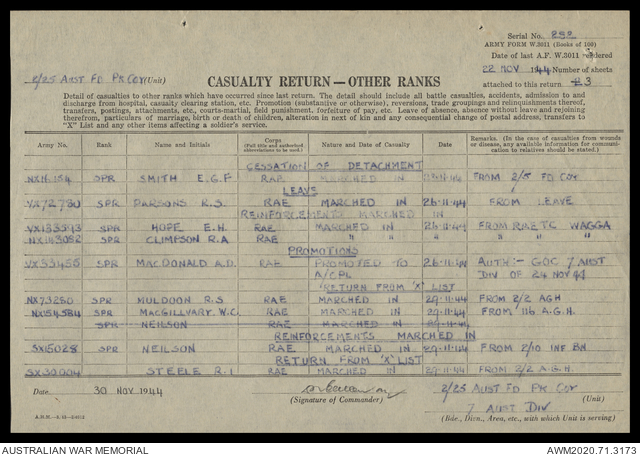 Serial No. 292
ARMY FORM W.3011 (Books of 100)
Date of last A.F. W.3011 rendered
2/25 AUST FD PK COY (Unit)
22 NOV 1944 Number of sheets
CASUALTY RETURN—OTHER RANKS
attached to this return 3
Detail of casualties to other ranks which have occurred since last return. The detail should include all battle casualties, accidents, admission to and
discharge from hospital, casualty clearing station, etc. Promotion (substantive or otherwise), reversions, trade groupings and relinquishments thereof,
transfers, postings, attachments, etc., courts-martial, field punishment, forfeiture of pay, etc. Leave of absence, absence without leave and rejoining
therefrom, particulars of marriage, birth or death of children, alteration in next of kin and any consequential change of postal address, transfers to
"X" List and any other items affecting a soldier's service.
Army No. Rank Name and Initials Corps (Full title and authorized abbreviations to be used.) Nature and Date of Casualty Date Remarks. (In the case of casualties from wounds or disease, any available information for communication to relatives should be stated.)
CESSATION OF DETACHMENT
SPR SMITH E.G.F. RAE MARCHED IN FROM 2/5 FD COY
LEAVE
VX72780 SPR PARSONS R.S. RAE MARCHED IN 26-11-44 FROM LEAVE
REINFORCEMENTS MARCHED IN
SPR HOPE E.H. RAE MARCHED IN 26-11-44 FROM RAETC WAGGA
NX143082 SPR CLIMPSON R.A. RAE " " " " "
PROMOTIONS
VX53456 SPR MACDONALD A.D. RAE PROMOTED TO 26-11-44 AUTH:- GOC 7 AUST
A/CPL DIV OF 24 NOV 44
RETURN FROM 'X' LIST
NX73250 SPR MULDOON R.S RAE MARCHED IN 29-11-44 FROM 2/2 AGH
NX54584 SPR MACGILLVARY. W.C. RAE MARCHED IN 29-11-44 FROM 116 A.G.H.
SPR NEILSON RAE MARCHED IN 29-11-44
REINFORCEMENTS MARCHED IN
SX15028 SPR NEILSON RAE MARCHED IN 29-11-44 FROM 2/10 INF BN
RETURN FROM 'X' LIST
SX30004 STEELE R.I RAE MARCHED IN 29-11-44 FROM 2/2 A.G.H.
Date 30 NOV 1944
(Signature of Commander)
2/25 AUST FD PK COY (Unit)
7 AUST DIV
(Bde., Divn., Area, etc., with which Unit is serving)
AUSTRALIAN WAR MEMORIAL
AWM2020.71.3173